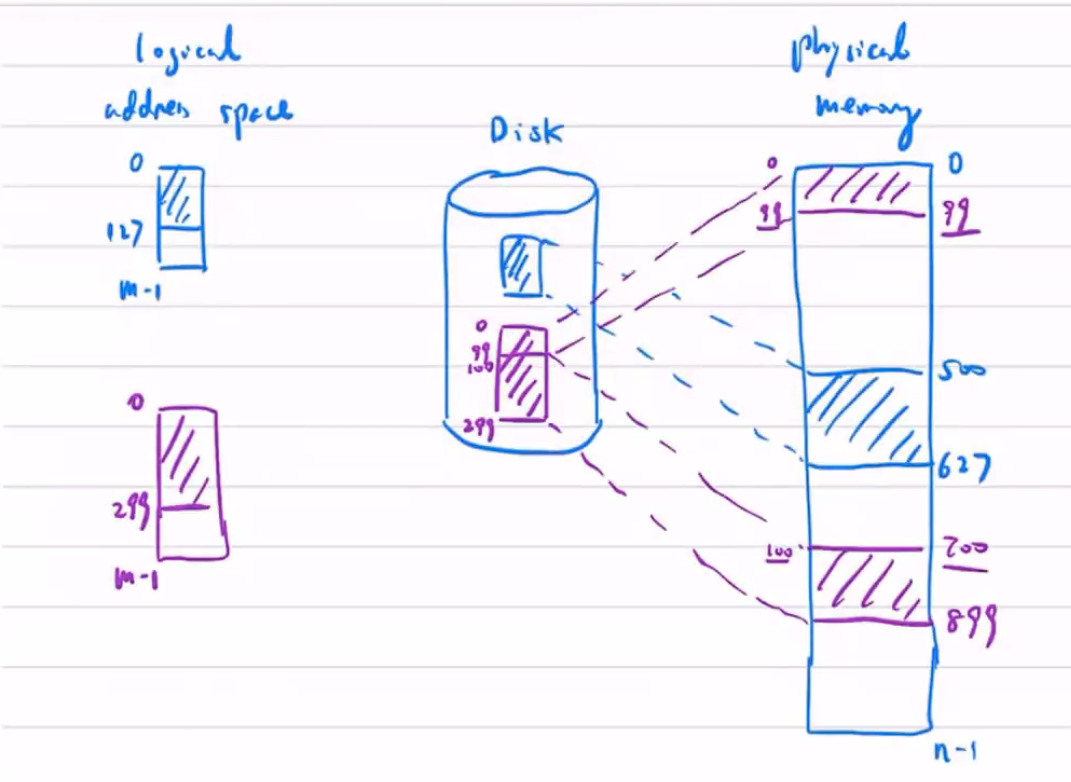 logical
address space
0
127
m-1
0
299
m-1
Disk
0
99
100
299
physical
memory
0
0
99
99
500
627
100
700
899
n-1